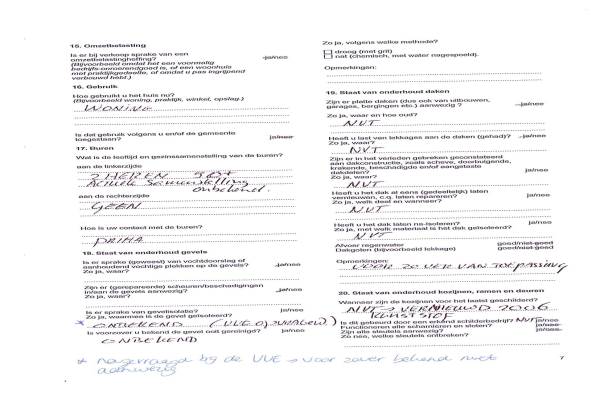 15. Omzetbelasting
Is er bij verkoop sprake van een
omzetbelastingheffing? -ja/nee
(Bijvoorbeeld omdat het een voormalig
bedrijfs-onroerendgoed is, of een woonhuis
met praktijkgedeelte, of omdat u pas ingrijpend
verbouwd hebt.)
16. Gebruik
Hoe gebruikt u het huis nu?
(Bijvoorbeeld woning, praktijk, winkel, opslag.)
WONING
Is dat gebruik volgens u en/of de gemeente
toegestaan? ja/nee
17. Buren
Wat is de leeftijd en gezinssamenstelling van de buren?
aan de linkerzijde
2 HEREN
Actuele Samenstelling
onbekend
aan de rechterzijde
GEEN
Hoe is uw contact met de buren?
PRIMA
18. Staat van onderhoud gevels
Is er sprake (geweest) van vochtdoorslag of
aanhoudend vochtige plekken op de gevels? ja/nee
Zo ja, waar?
Zijn er (gerepareerde) scheuren/beschadigingen
in/aan de gevels aanwezig? ja/nee
Zo ja, waar?
Is er sprake van gevelisolatie? ja/nee
Zo ja, wanneer is de gevel geïsoleerd?
* ONBEKEND (VVE
Is voorzover u bekend de gevel ooit gereinigd? ja/nee
ONBEKEND
* nagevraagd bij de VVE → voor zover bekend niet
aanwezig
Zo ja, volgens welke methode?
droog (met grit)
nat (chemisch, met water nagespoeld).
Opmerkingen:
19. Staat van onderhoud daken
Zijn er platte daken (dus ook van uitbouwen,
garages, bergingen etc.) aanwezig? -ja/nee
Zo ja, waar en hoe oud?
NVT
Heeft u last van lekkages aan de daken (gehad)? -ja/nee
Zo ja, waar?
NVT
Zijn er in het verleden gebreken geconstateerd
aan dakconstructie, zoals scheve, doorbuigende,
krakende, beschadigde en/of aangetaste
dakdelen? ja/nee
Zo ja, waar?
NVT
Heeft u het dak al eens (gedeeltelijk) laten
vernieuwen, c.q. laten repareren? ja/nee
Zo ja, welk deel en wanneer?
NVT
Heeft u het dak laten na-isoleren? ja/nee
Zo ja, met welk materiaal is het dak geïsoleerd?
NVT
Afvoer regenwater goed/niet-goed
Dakgoten (bijvoorbeeld lekkage) goed/niet-goed
Opmerkingen:
VOOR ZOVER VAN TOEPASSING
20. Staat van onderhoud kozijnen, ramen en deuren
Wanneer zijn de kozijnen voor het laatst geschilderd?
NVT → VERNIEUWD 2006
KUNSTSTOF
Is dit gebeurd door een erkend schildersbedrijf? NVT ja/nee
Functioneren alle scharnieren en sloten? ja/nee
Zijn alle sleutels aanwezig? ja/nee
Zo nee, welke sleutels ontbreken?
7